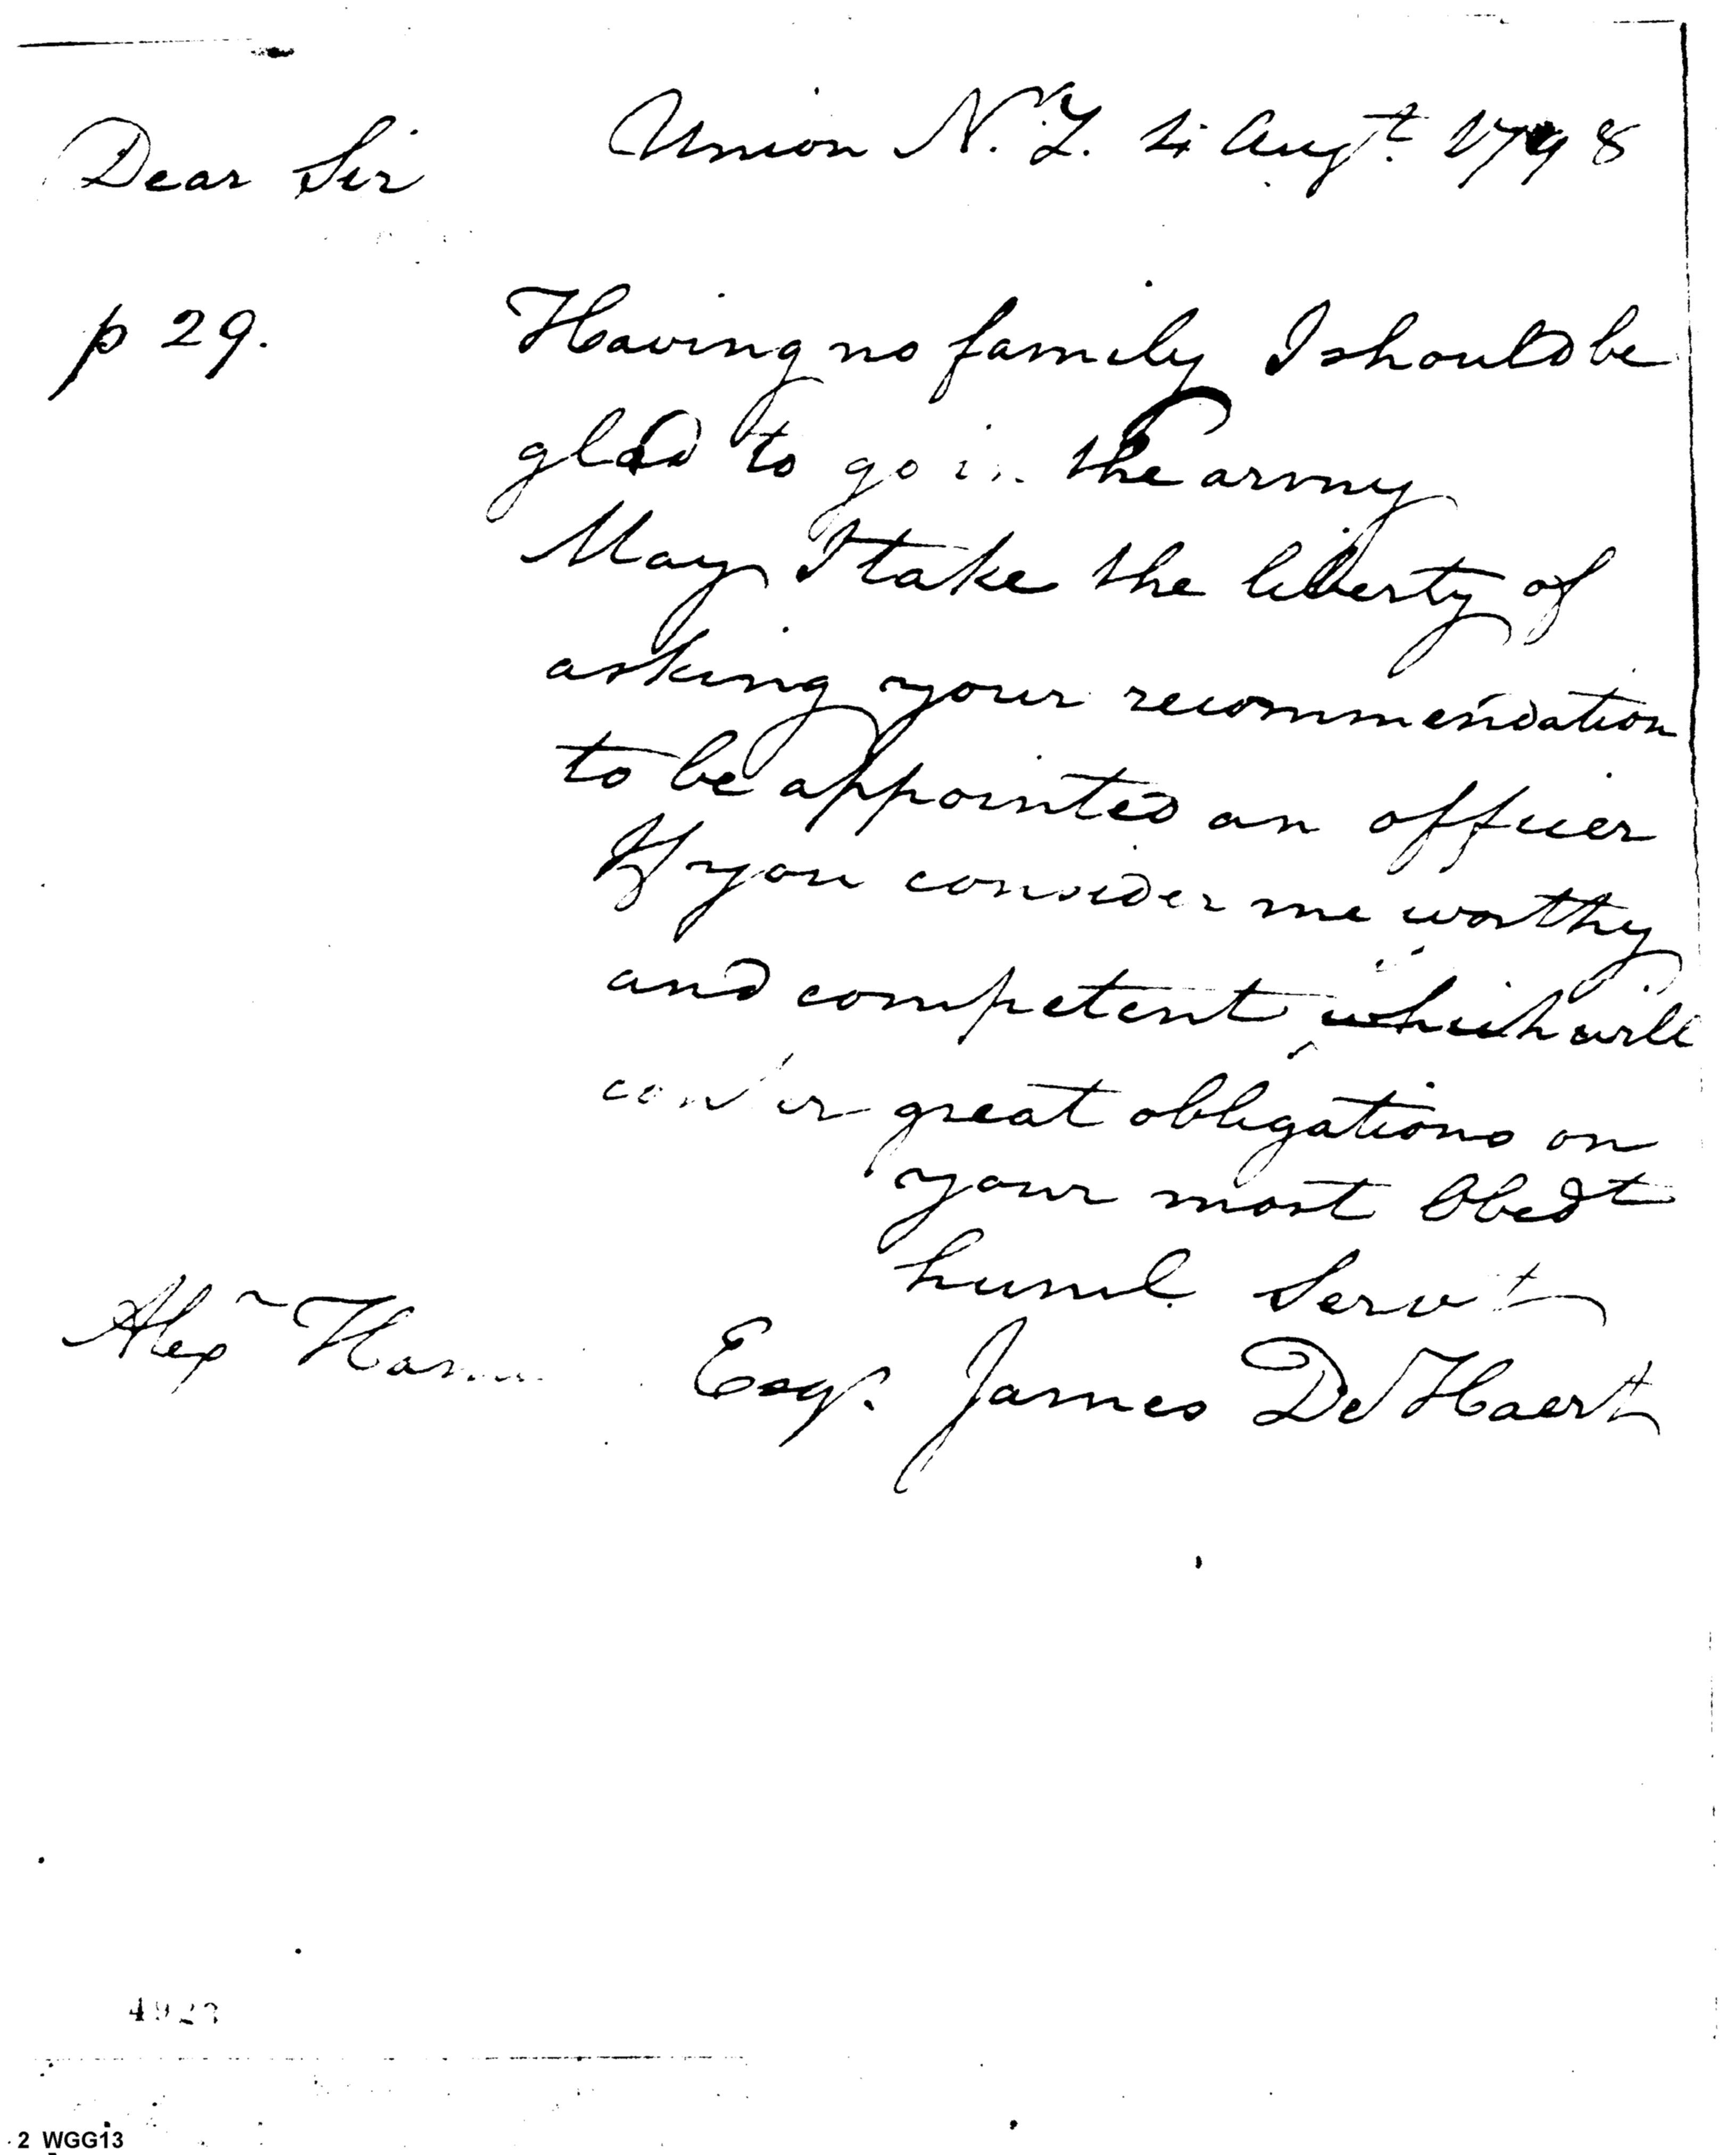 Union N.Y. 4 Augt. 1798
Dear Sir
p 29.
Having no family I should be
glad to go in the army
May I take the liberty of
asking your recommendation
to be appointed an officer
If you consider me worthy
and competent which will
confer great obligations on
your most Obedt
huml. Servt
Alexr Ham Esqr. James De Haert
2 WGG13